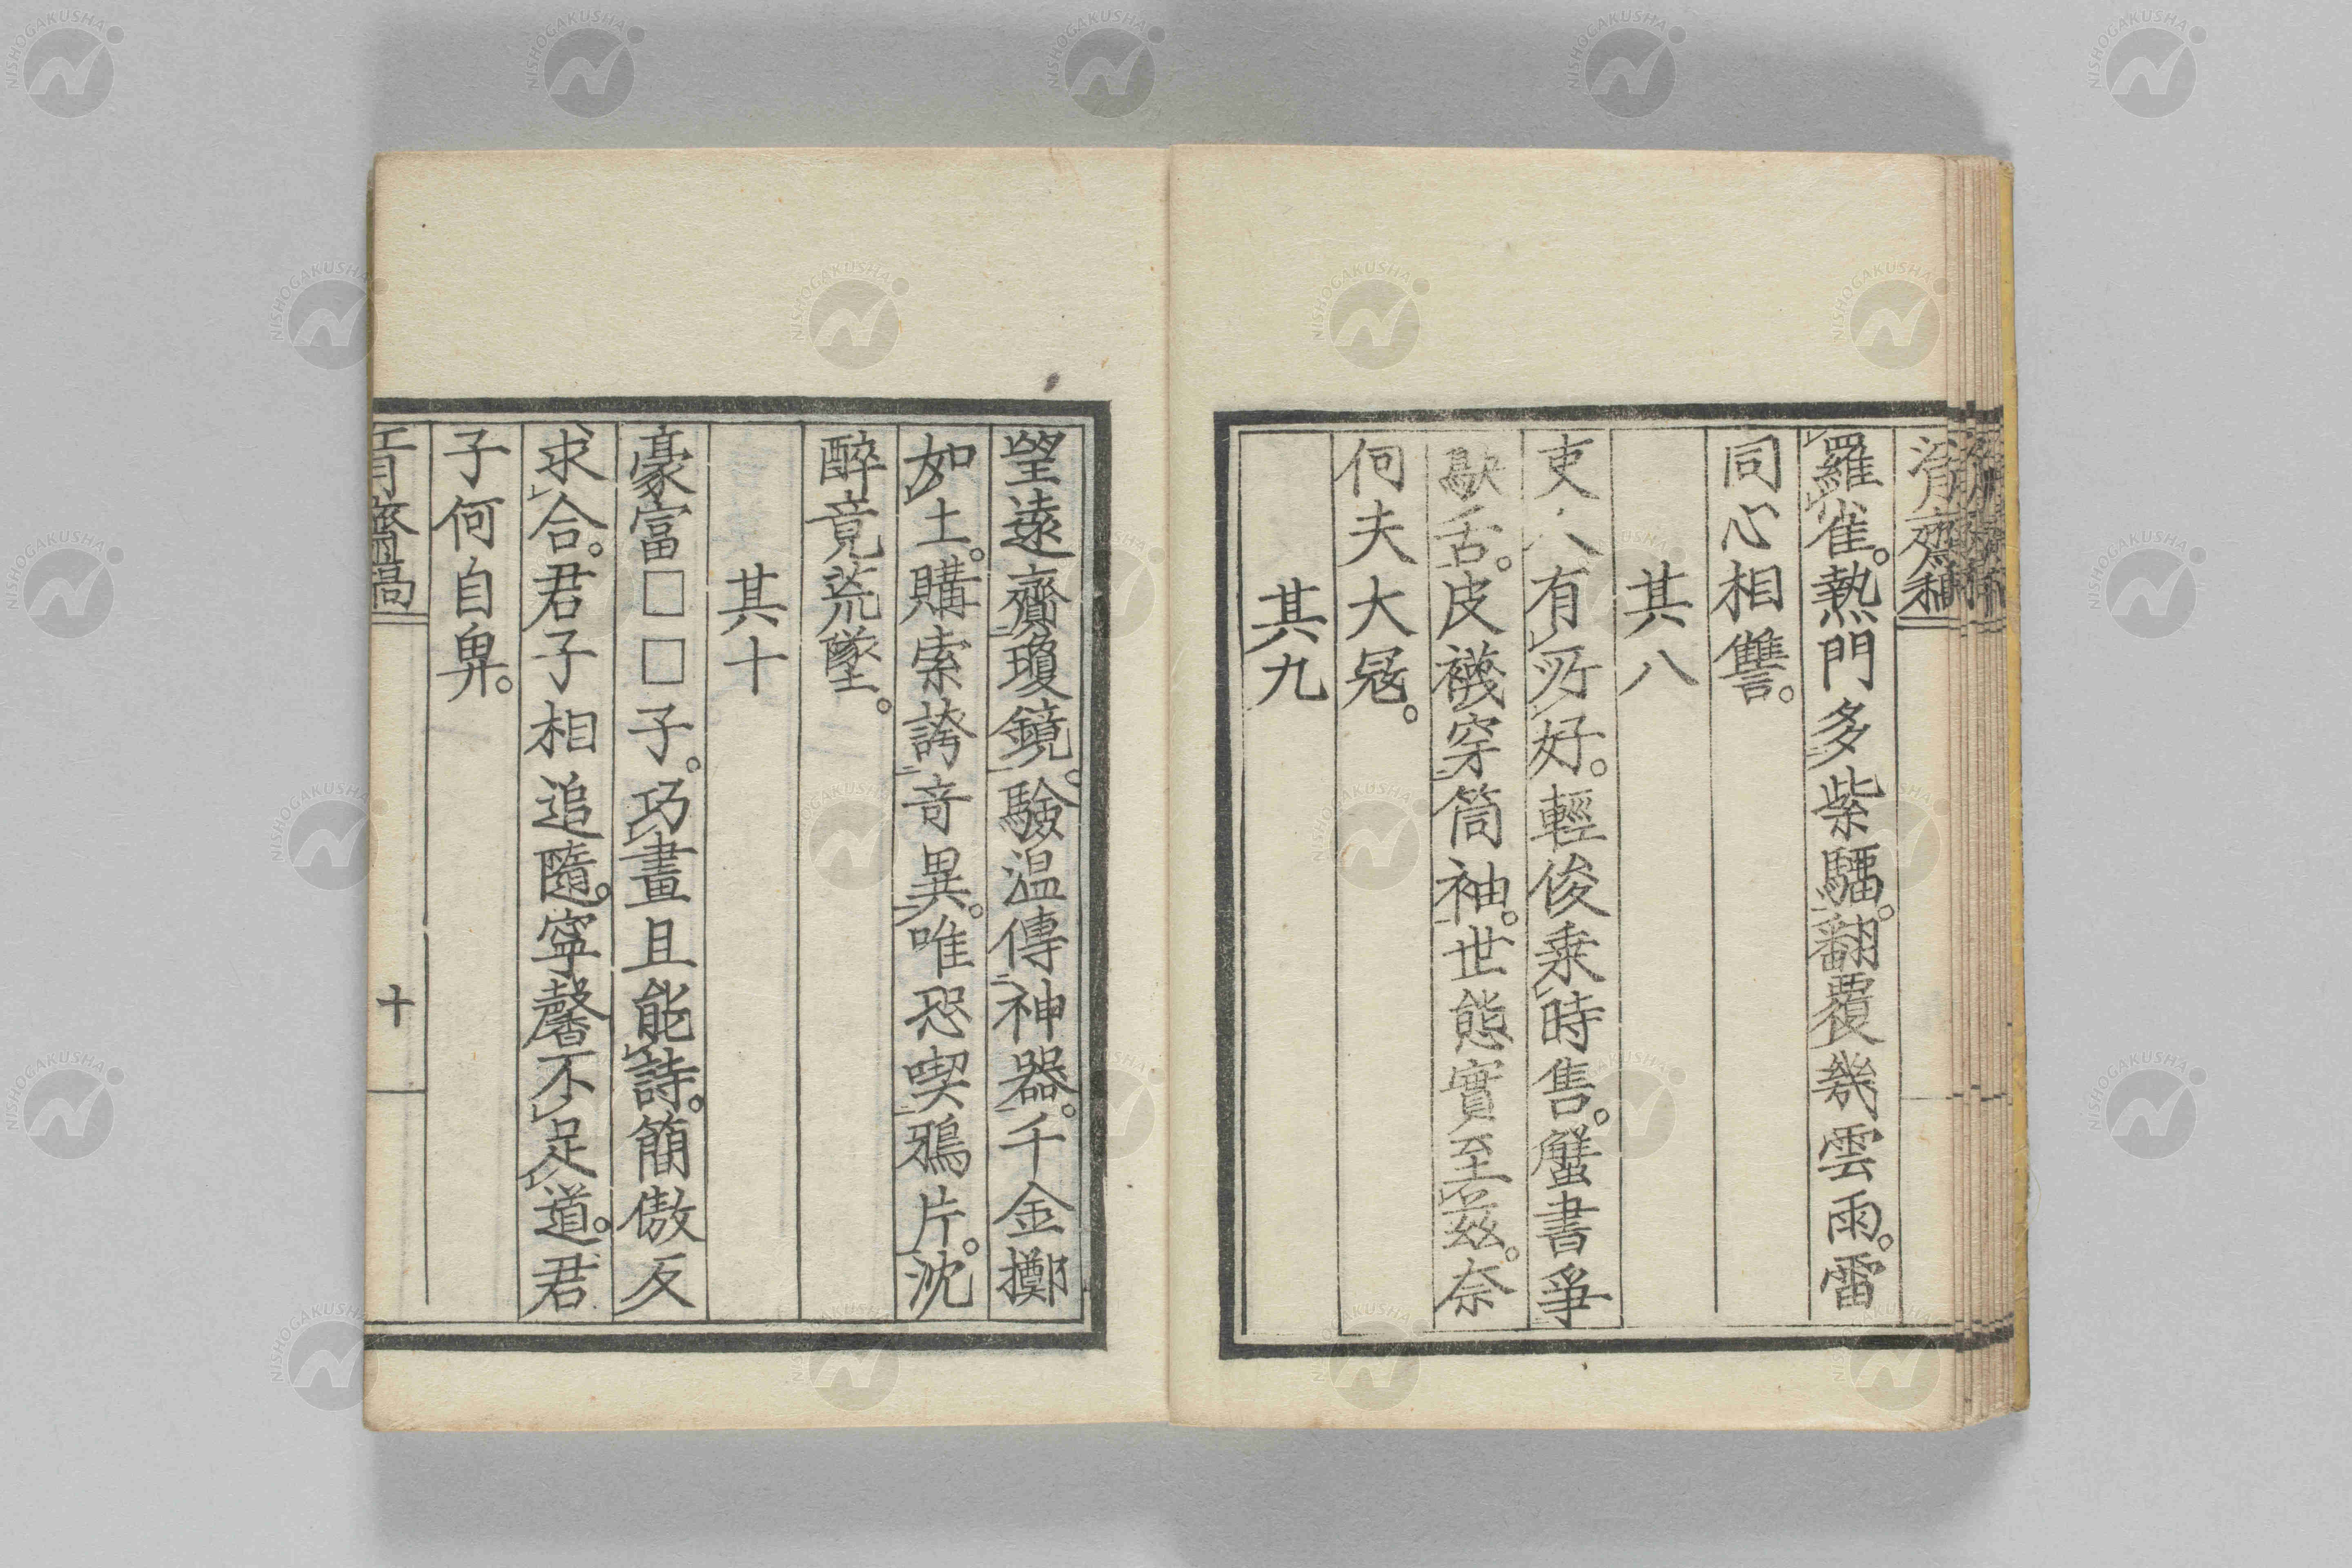 羅雀。熱門多紫騮。翻覆幾雲雨。雷
同心相讐。
其八
吏人有所好。輕俊乗時售。蟹書爭
鴃舌。皮襪穿筒袖。世態實至茲。奈
何夫大冦。
其九
望遠齎瓊鏡。驗温傳神器。千金擲
如土。購索誇竒異。唯恐喫鴉片。沈
醉竟荒墜。
其十
豪富□□子。巧畫且能詩。簡傲反
求合。君子相追隨。寧馨不足道。君
子何自卑。
齋稿
十
NISHOGAKUSHA